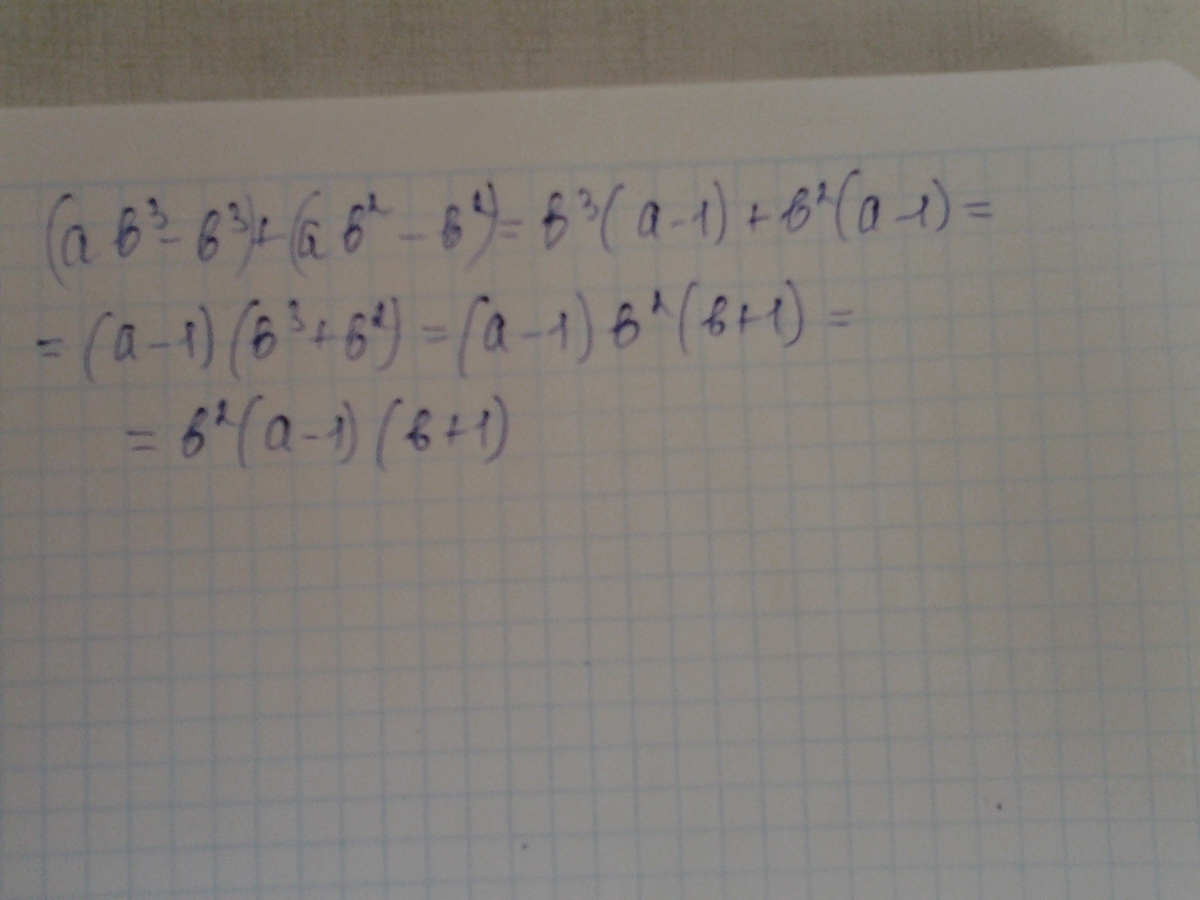 (ab³-b³)+(ab²-b²)=b³(a-1)+b²(a-1)=
=(a-1)(b³+b²)=(a-1)b²(b+1)=
=b²(a-1)(b+1)